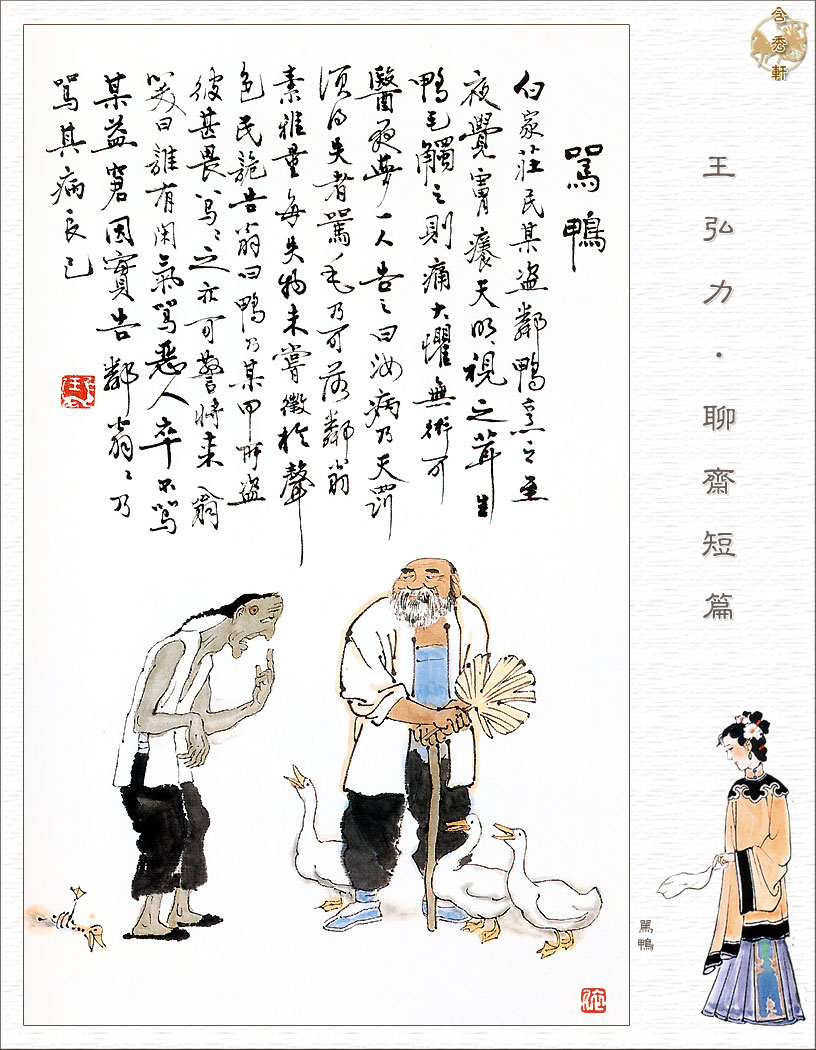 駡鴨
白家莊民某盗鄰鴨烹之至
夜覺膚癢天明視之茸生
鴨毛觸之則痛大懼無術可
醫夜夢一人告之曰汝病乃天罰
須得失者駡毛乃可落鄰翁
素雅量每失物未嘗徵於聲
色民詭告翁曰鴨乃某甲所盗
彼甚畏駡〻之亦可警將来翁
笑曰誰有閑氣駡惡人卒不駡
某益窘因實告鄰翁〻乃
駡其病良已
含秀軒
王弘力·聊齋短篇
駡鴨